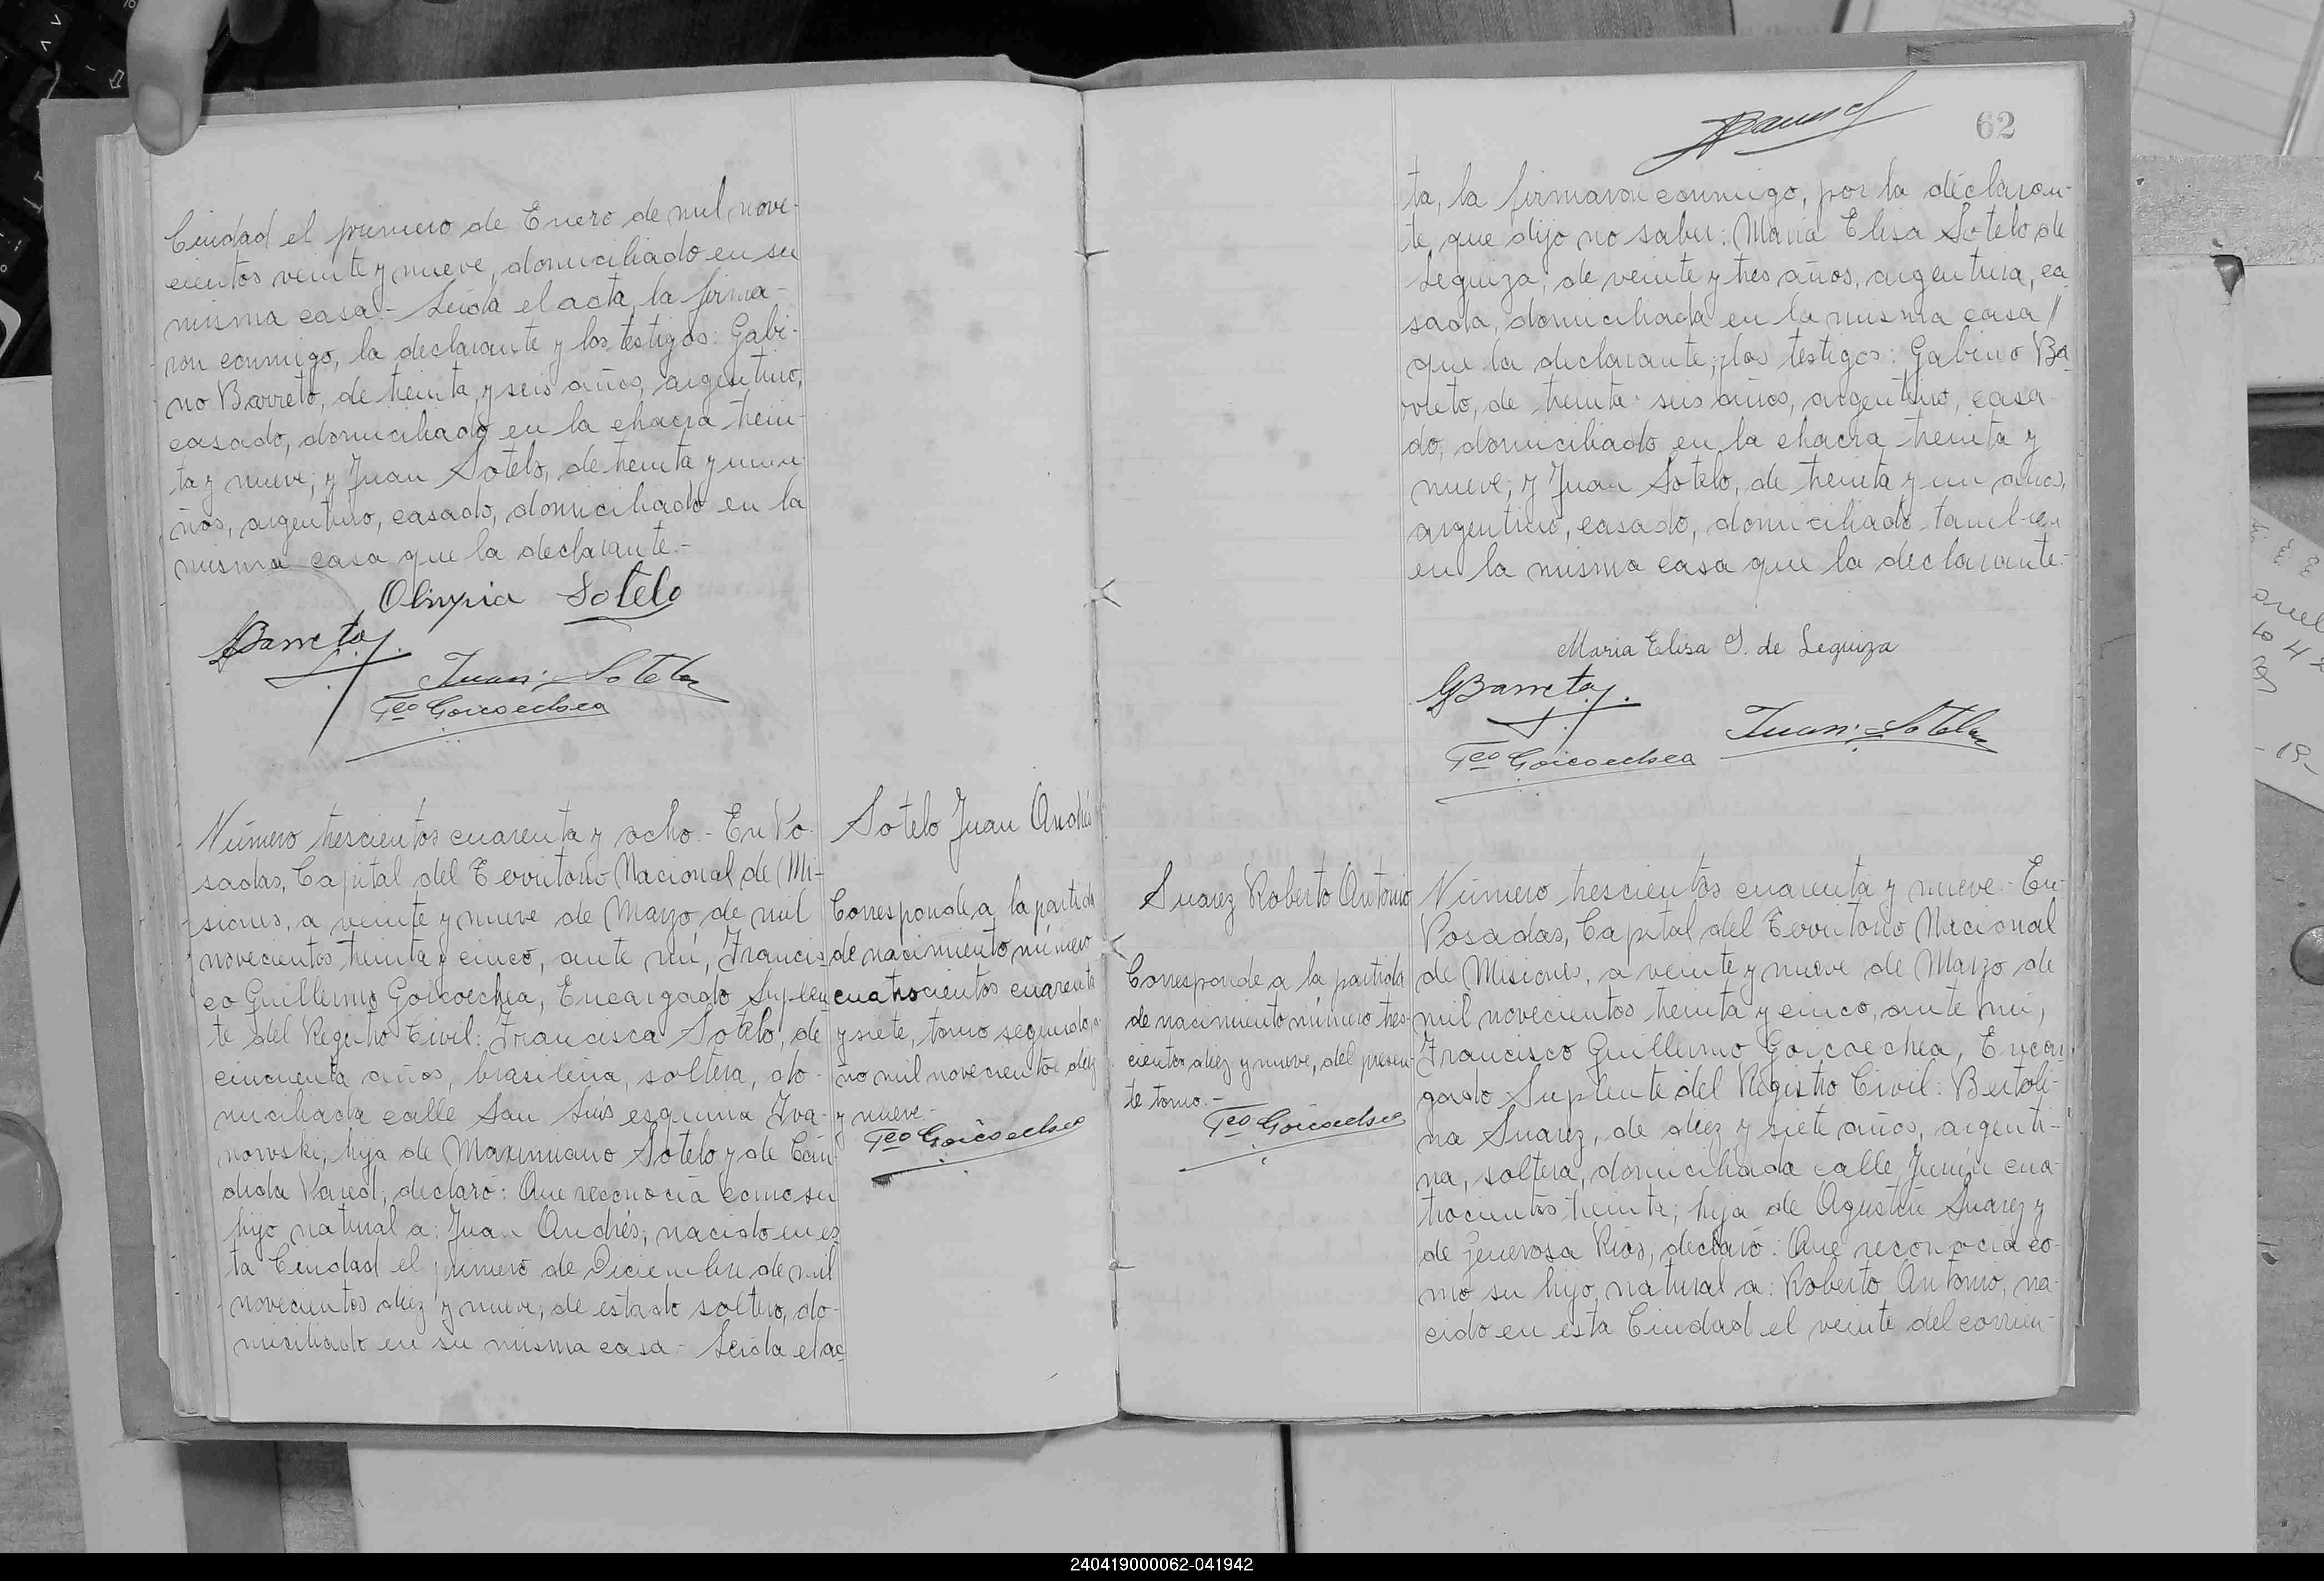 Ciudad el primero de Enero de mil nove-
cientos veinte y nueve, domiciliado en su
misma casa.- Leida el acta, la firma-
ron conmigo, la declarante y los testigos: Gabi-
no Barreto, de treinta y seis años, argentino,
casado, domiciliado en la chacra trein-
ta y nueve; y Juan Sotelo, de treinta y un a
ños, argentino, casado, domiciliado en la
misma casa que la declarante.-
Olimpia Sotelo
GBarreto
Juan Sotelo
Fco Goicoechea
Número trescientos cuarenta y ocho.- En Po-
sadas, Capital del Territorio Nacional de Mi-
siones, a veinte y nueve de Marzo de mil
novecientos treinta y cinco, ante mí, Francis-
co Guillermo Goicoechea, Encargado Suplen
te del Registro Civil: Francisca Sotelo, de
cincuenta años, brasileña, soltera, do-
miciliada calle San Luis esquina Iva-
nowski, hija de Maximiano Sotelo y de Cán-
dida Pared; declaró: Que reconocía como su
hijo natural a: Juan Andrés, nacido en es
ta Ciudad el primero de Diciembre de mil
novecientos diez y nueve, de estado soltero, do-
miciliado en su misma casa.- Leida el ac
Sotelo Juan Andrés
Corresponde a la partida
de nacimiento número
cuatrocientos cuarenta
y siete, tomo segundo, a-
ño mil novecientos diez
y nueve.-
Fco Goicoechea
62
ta, la firmaron conmigo, por la declaran-
te, que dijo no saber: Maria Elisa Sotelo de
Leguiza, de veinte y tres años, argentina, ca
sada, domiciliada en la misma casa //
que la declarante; y los testigos: Gabino Ba
rreto, de treinta seis años, argentino, casa-
do, domiciliado en la chacra treinta y
nueve; y Juan Sotelo, de treinta y un años,
argentino, casado, domiciliado tambien
en la misma casa que la declarante.-
Maria Elisa S. de Leguiza
GBarreto
Juan Sotelo
Fco Goicoechea
Suarez Roberto Antonio
Corresponde a la partida
de nacimiento número tres-
cientos diez y nueve, del presen-
te tomo.-
Fco Goicoechea
Número trescientos cuarenta y nueve.- En
Posadas, Capital del Territorio Nacional
de Misiones, a veinte y nueve de Marzo de
mil novecientos treinta y cinco, ante mí,
Francisco Guillermo Goicoechea, Encar
gado Suplente del Registro Civil: Bertoli-
na Suarez, de diez y siete años, argenti-
na, soltera, domiciliada calle Junín cua-
trocientos treinta; hija de Agustín Suarez y
de Generosa Rios; declaró: Que reconocía co-
mo su hijo natural a: Roberto Antonio, na-
cido en esta Ciudad el veinte del corrien-
240419000062-041942